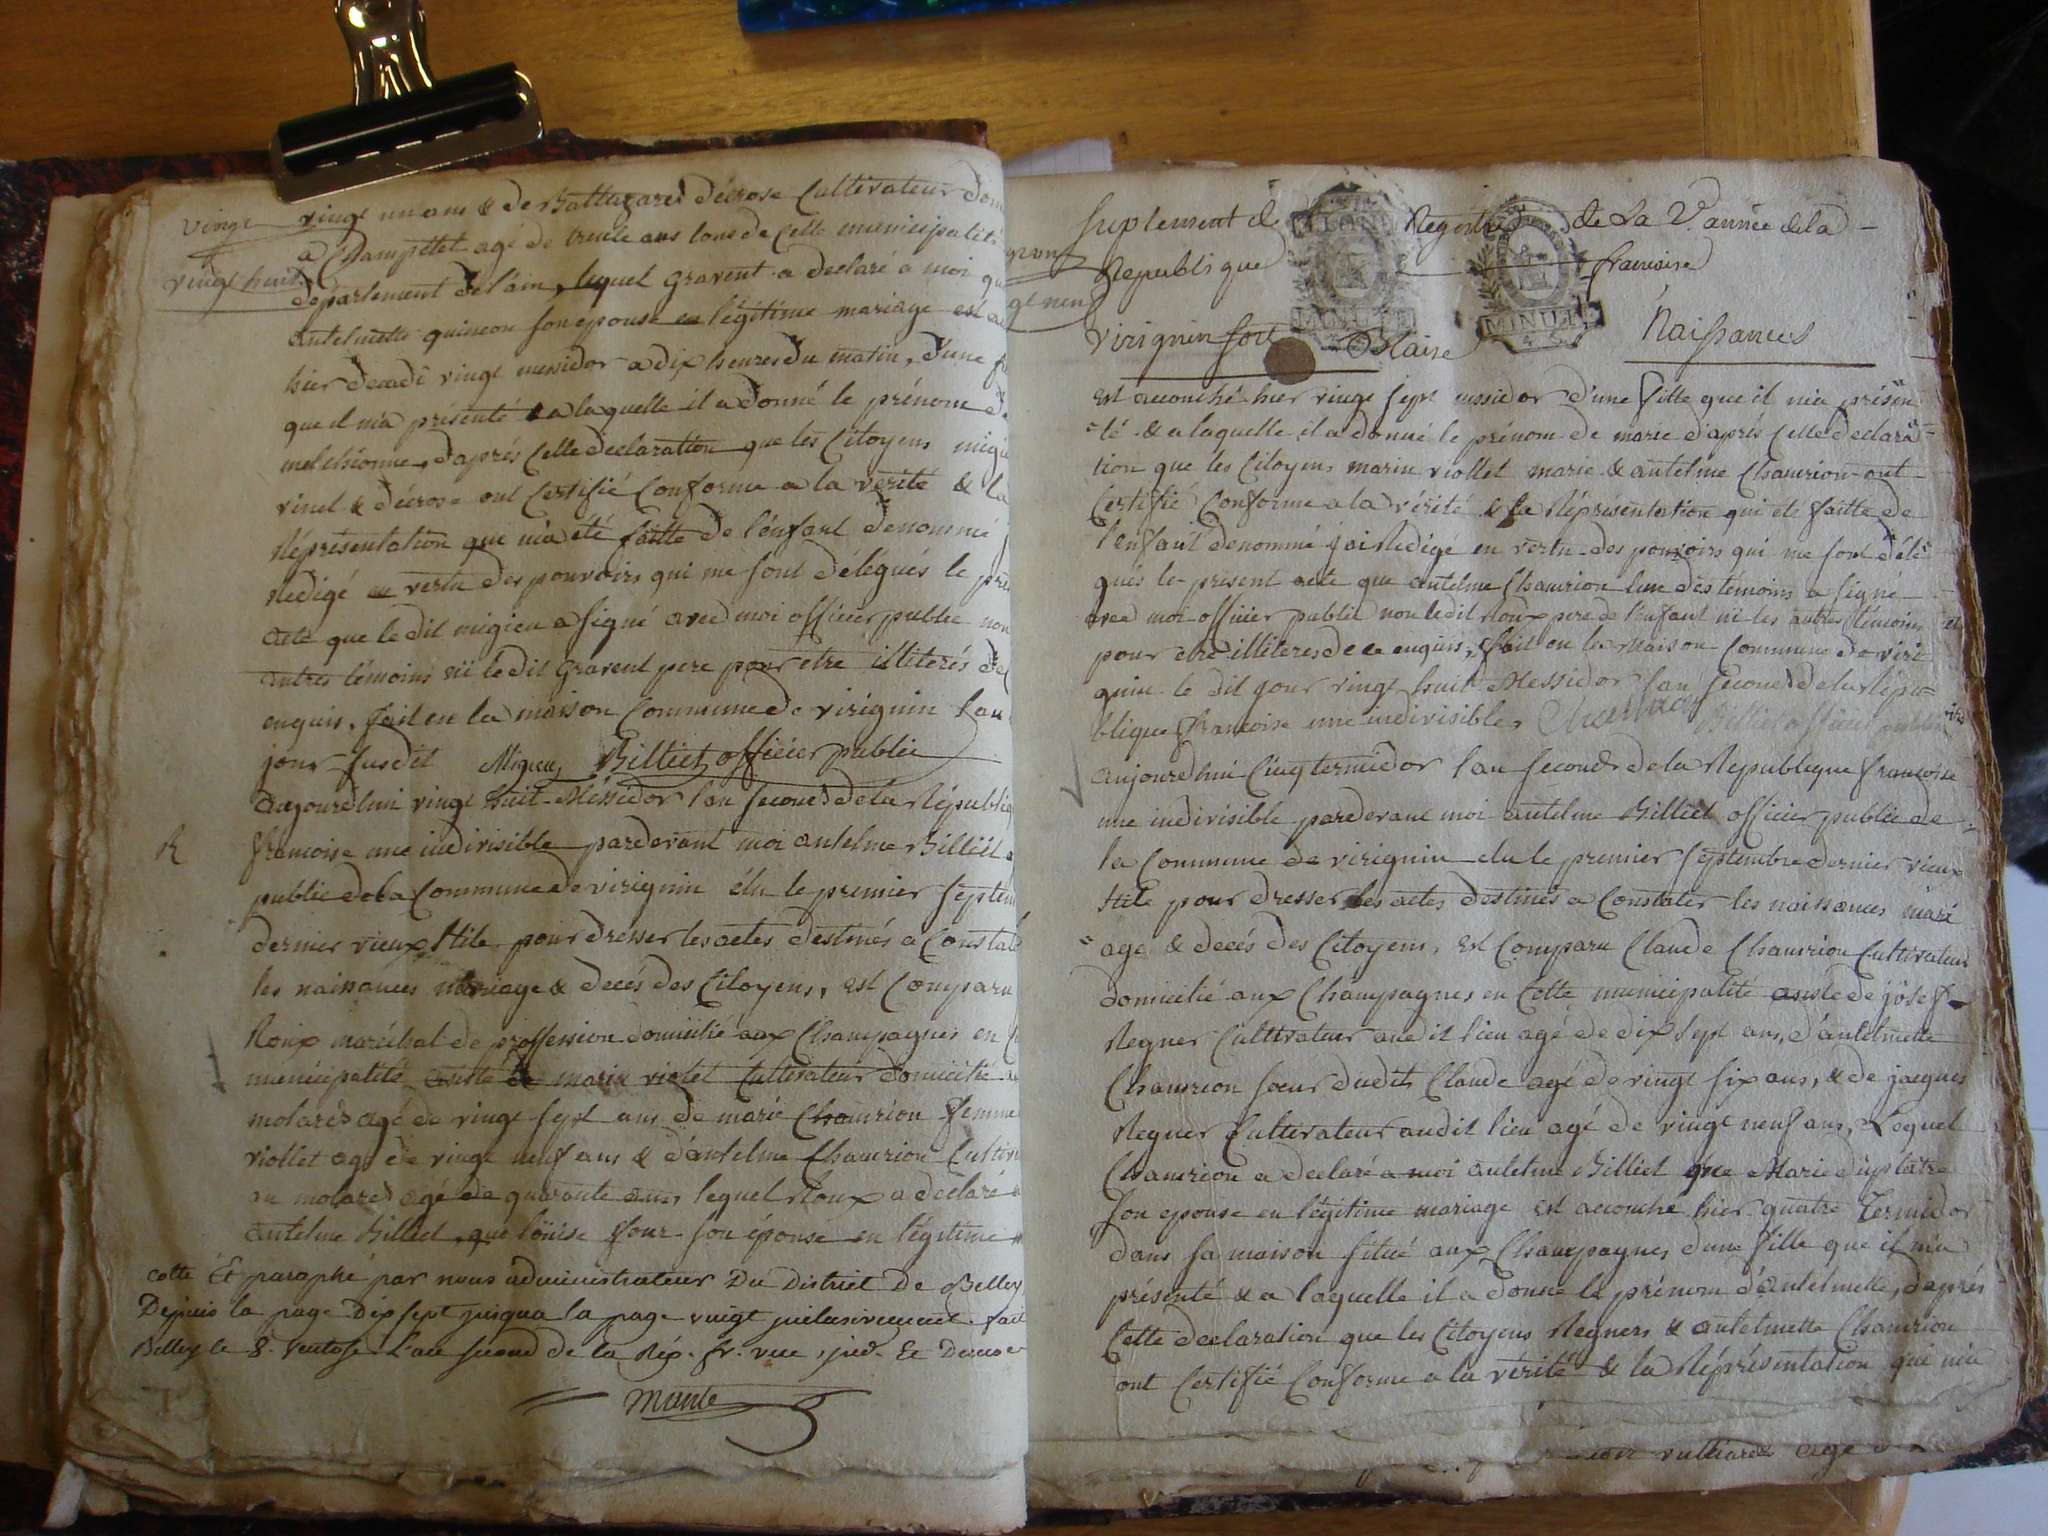 vingt
vingt huit
vingt un ans & de Baltazard décrose Cultivateur
a Champtel agé de trente ans tous de Cette municipalité
département de lain, lequel gravent a declaré a moi
antelmette quincon son epouse en légitime mariage est
hier decadi vingt messidor a dix heures du matin, d'une
que il m'a présenté & a laquelle il a donné le prénom
melchionne, daprés Cette declaration que les Citoyens
vinet & décrose ont Certifié Conforme a la verité & la
Répresentation que m'a été faitte de l'enfant denommé
Redigé en vertu des pouvoirs qui me sont délégués le
acte que le dit migieu a signé avec moi officier public non
autres témoins ni le dit gravent pere pour etre illiterés
enquis, fait en la maison Commune de virignin
jour susdit Migieu Billiet officier public
aujourdhui vingt huit Méssidor lan second de la
R
francoise une indivisible pardevant moi antelme Billiet
public de la Commune de virignin élu le premier
dernier vieux stile pour dresser les actes destinés a
les naissances mariage & decés des Citoyens, est Comparu
Roux maréchal de proffession domicilié aux Champagnes en
municipalité assisté de marin violet Cultivateur domicilié
molard agé de vingt sept ans de marie Chamrion femme
viollet agé de vingt neuf ans & d'antelme Chamrion
au molard agé de quarante ans, lequel Roux a declaré
antelme Billiet que loüise four son épouse en légitime
Cotté Et paraphé par nous administrateur Du District De Belley
Depuis la page Dix sept jusqua la page vingt inclusivement. fait
Belley le 8. ventose L'an second de la Rép. fr. une, ind. Et
Suplement de Registre de la 2e année de la
Republique francoise
virignin Naissances
est accouché hier vingt sept messidor d'une fille que il m'a présen
té & a laquelle il a donné le prénom de marie d'aprés Cette declara
tion que les Citoyens marin viollet marie & antelme Chamrion ont
Certifié Conforme a la vérité & la Réprésentation qui été faitte de
l'enfant denommé j'ai Redigé en vertu des pouvoirs qui me sont délé
gués le présent acte que antelme Chamrion l'un des témoins a signé
avec moi officier public non le dit Roux pere de l'enfant ni les autres témoins
pour etre illiteres de ce enquis, fait en la Maison Commune de viri
gnin le dit jour vingt huit Messidor lan second de la Répu
blique francoise une indivisible, Chamrion Billiet officier public
aujourdhui Cinq termidor lan second de la Republique francoise
une indivisible pardevant moi antelme Billiet officier public de
la Commune de virignin elu le premier septembre dernier vieux
stile pour dresser les actes destinés a Constater les naissances mari
age & decés des Citoyens, est Comparu Claude Chamrion Cultivateur
domicilié aux Champagnes en Cette municipalité assisté de josef
Regner Cultivateur audit lieu agé de dix sept ans, d'antelmette
Chamrion soeur dudit Claude agé de vingt six ans, & de jacques
Regner Cultivateur audit lieu agé de vingt neuf ans, Lequel
Chamrion a declaré a moi antelme Billiet que Marie duplatre
son epouse en légitime mariage est accouché hier quatre Termidor
dans sa maison situé aux Champagnes d'une fille que il m'a
présenté & a laquelle il a donné le prénom d'antelmette, daprés
Cette declaration que les Citoyens Regners & antelmette Chamrion
ont Certifié Conforme a la vérité & la Réprésentation qui m'a
agé